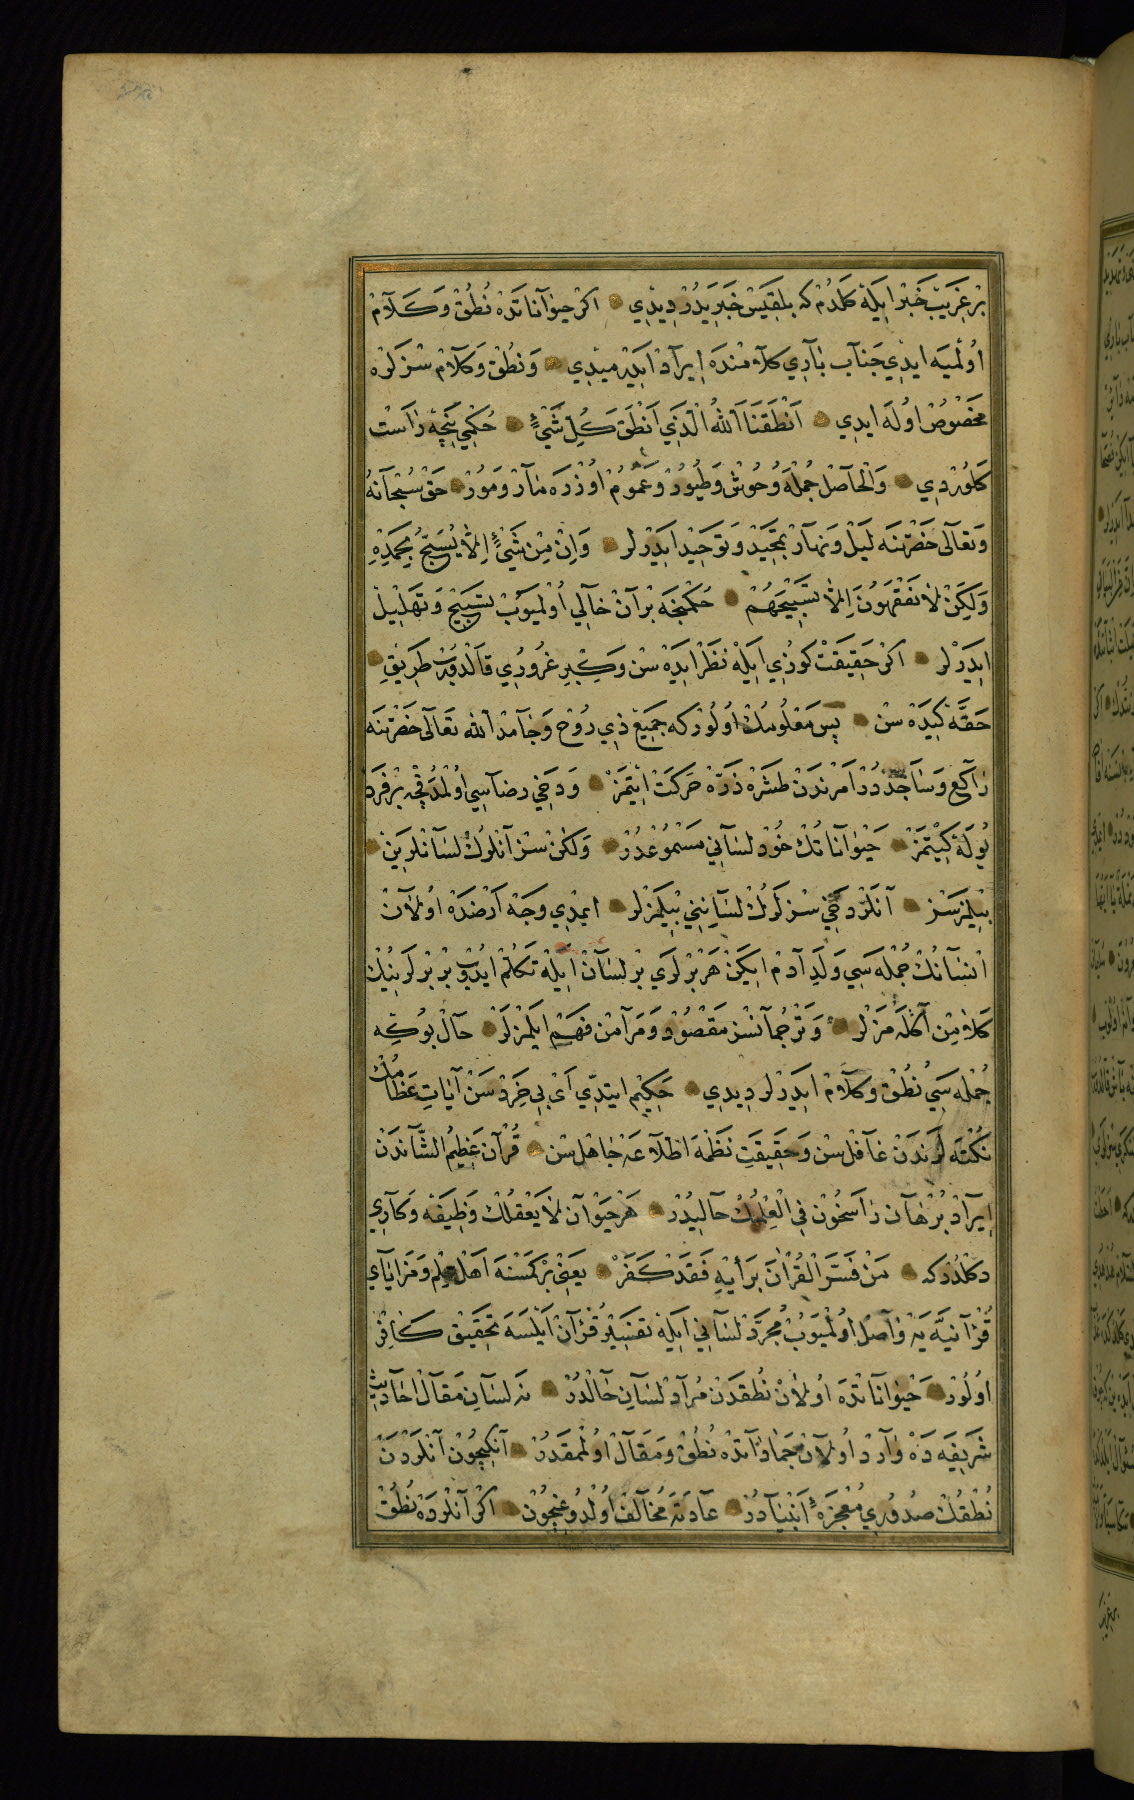 بر غريب خبر ايله كلدم كه بلقيس خبريدر ديدي اكر حيواناتده نطق و كلام
اولميه ايدي جناب باري كلامنده ايراد ايدرميدي و نطق و كلام سزلره
مخصوص اوله ايدي انطقنا الله الذي انطق كل شيء حكمي نيجه راست
كلوردي والحاصل جمله وحوش و طيور و عموم اوزره مار و مور حق سبحانه
وتعالى حضرتنه ليل و نهار تمجيد و توحيد ايدرلر وان من شيء الا يسبح بحمده
ولكن لا تفقهون الا تسبيحهم حكمنجه بر آن خالي اولميوب تسبيح و تهليل
ايدرلر اكر حقيقت كوزي ايله نظر ايده سن و كبر غروري قالدروب طريق
حقه كيده سن پس معلومك اولور كه جميع ذي روح و جامد الله تعالى حضرتنه
راكع و ساجددر امرندن طشره ذره حركت ايتمز و دخي رضاسي اولمدقجه بر فرد
يوله كيتمز حيواناتك خود لساني مسموعدر ولكن سز آنلرك لسانلرين
بيلمزسز آنلر دخي سزلرك لسانني بيلمزلر ايمدي وجه ارضده اولان
انسانك جمله سي ولد آدم ايكن هر برلري بر لسان ايله تكلم ايدوب بر برلرينك
كلامين آكلمزلر و ترجمانسز مقصود و مرامن فهم ايلمزلر حال بوكه
جمله سي نطق و كلام ايدرلر ديدي حكيم ايتدي اى بي خرد سن آيات عظامك
نكته لرندن غافل سن و حقيقت نظمه اطلاعه جاهل سن قرآن عظيم الشاندن
ايراد برهان راسخون في العلمك حاليدر هر حيوان لا يعقلك وظيفه و كاري
دكلدر كه من فسر القرآن برأيه فقد كفر يعني بر كمسنه اهل علم و مزاياي
قرآنيه يه واصل اولميوب مجرد لساني ايله تفسير قرآن ايلسه تحقيق كافر
اولور حيواناتده اولان نطقدن مراد لسان حالدر نه لسان مقال احاديث
شريفه ده وارد اولان جماداتده نطق و مقال اولمقدر آنكيچون آنلردن
نطقك صدوري معجزهٔ انبيادر عادته مخالف اولدوغيچون اكر آنلرده نطق